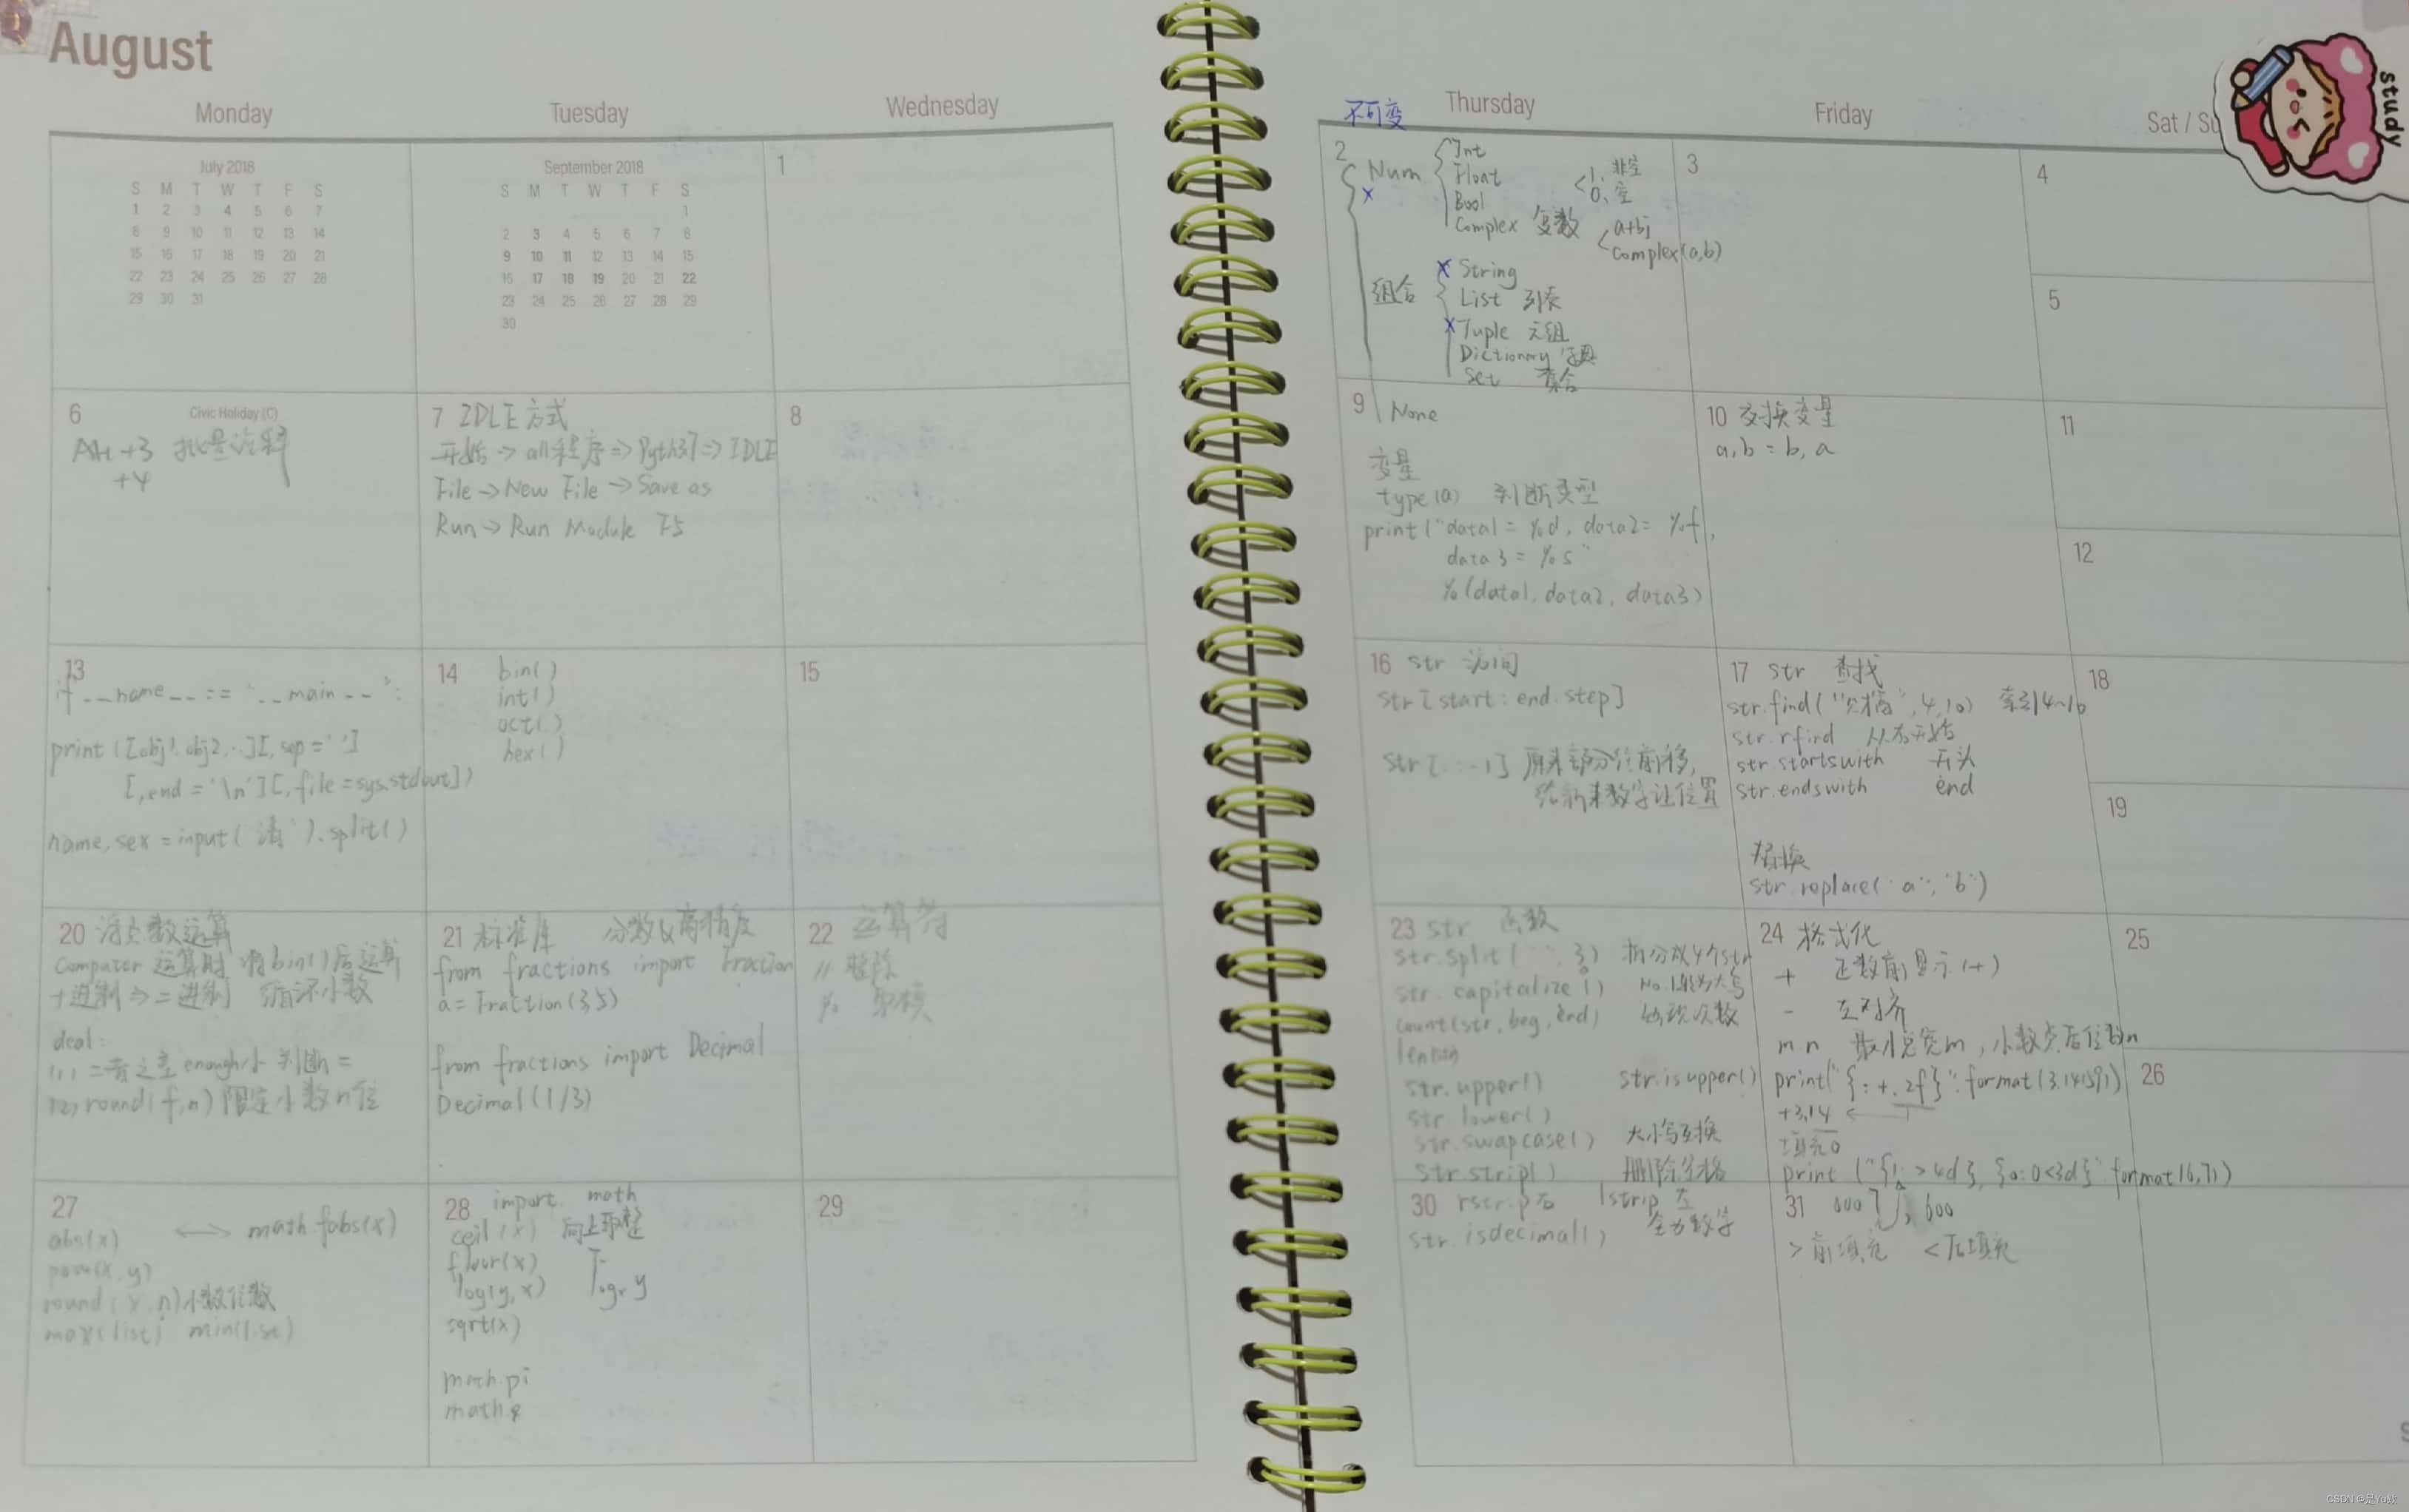 August
Monday
Tuesday
Wednesday
不可变
Thursday
Friday
Sat / Su
study
July 2018
S M T W T F S
1 2 3 4 5 6 7
8 9 10 11 12 13 14
15 16 17 18 19 20 21
22 23 24 25 26 27 28
29 30 31
September 2018
S M T W T F S
1
2 3 4 5 6 7 8
9 10 11 12 13 14 15
16 17 18 19 20 21 22
23 24 25 26 27 28 29
30
1
2
Num
x
Int
Float
Bool
Complex 复数
1. 非空
0. 空
a+bj
complex(a,b)
组合
x String
List 列表
x Tuple 元组
Dictionary 字典
Set 集合
3
4
5
6
Civic Holiday (C)
Alt +3 批量注释
+4
7 IDLE 方式
开始 => all程序 => Python37 => IDLE
File -> New File -> Save as
Run -> Run Module F5
8
9 None
变量
type(a) 判断类型
print("data1 = %d, data2 = %f,
data3 = %s"
%(data1, data2, data3)
10 交换变量
a, b = b, a
11
12
13
if __name__ == "__main__":
print([obj1, obj2, ..][, sep=' ']
[, end = '\n'][, file=sys.stdout])
name, sex = input('请').split()
14
bin()
int()
oct()
hex()
15
16 str 访问
str[start: end. step]
str[: : -1] 原来部分往前移,
给新来数字让位置
17 str 查找
str.find(" ", 4, 10) 索引4~10
str.rfind 从右开始
str.startswith 开头
str.endswith end
替换
str.replace("a", "b")
18
19
20 浮点数运算
Computer 运算时 将bin()后运算
十进制 => 二进制 循环小数
deal:
(1) 二者之差enough小 判断 =
(2) round(f,n) 限定小数n位
21 标准库 分数&高精度
from fractions import Fraction
a = Fraction(3,5)
from fractions import Decimal
Decimal(1/3)
22 运算符
// 整除
%
23 str 函数
str.split(" ", 3) 拆分成4个str
str.capitalize() No.1转为大写
count(str, beg, end) 出现次数
str.upper() str.isupper()
str lower()
str.swapcase() 大小写互换
str.strip() 删除空格
24 格式化
+ 正数前显示(+)
- 左对齐
m n 最小总宽m, 小数点后位数n
print("{:+.2f}".format(3.141591)
+3.14
填充0
print("{1: >4d}, {0: 0<3d}" format(6,71)
25
26
27
abs(x) <—> math.fabs(x)
pow(x, y)
round(x, n) 小数位数
max(list) min(list)
28 import math
ceil(x) 向上取整
floor(x) 下
log(y, x) logx y
sqrt(x)
math.pi
math.e
29
30 rstrip右 lstrip 左
str.isdecimal() 全为数字
31 0071, 600
> 前填充 < 后填充
CSDN @是Yu欸